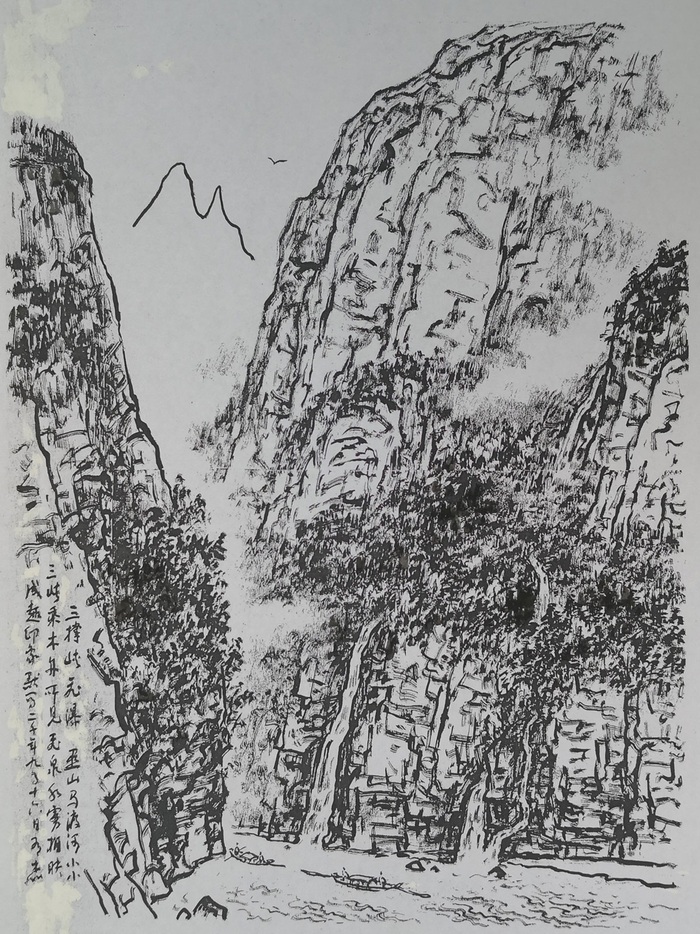 三撑峡飞瀑 巫山马渡河小小
三峡乘木舟可见飞泉水雾相映
成趣印象 默写二千年九月十六日